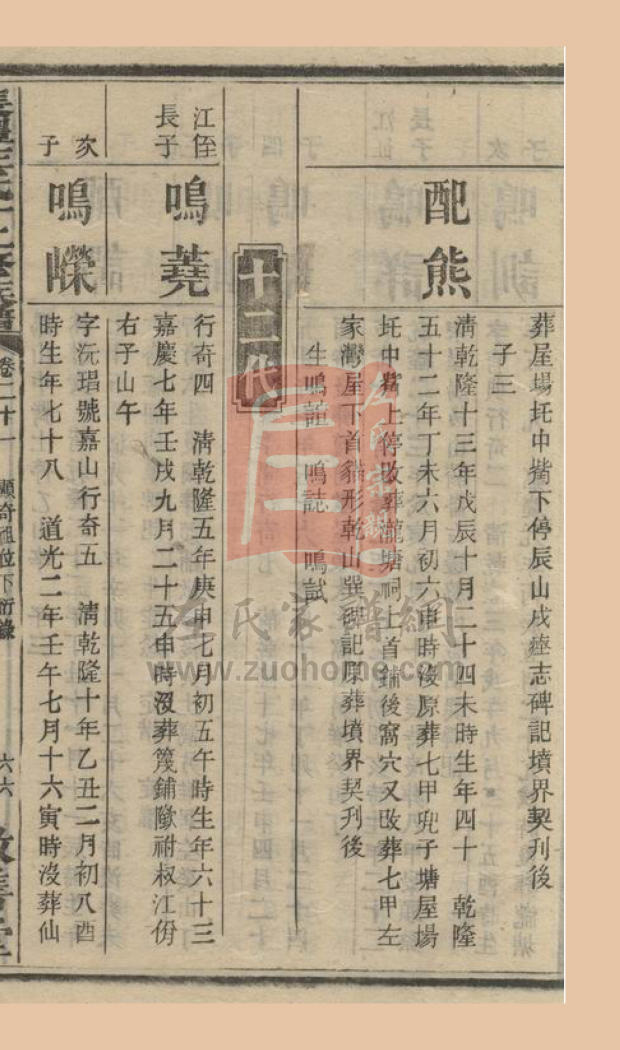 葬屋場圫中觜下停辰山戌㽵志碑記墳界契刋後
子三
配熊
清乾隆十三年戊辰十月二十四未時生年四十 乾隆
五十二年丁未六月初六申時沒原葬七甲兜子塘屋場
圫中觜上停改葬瀧塘祠上首鋪後窩穴又改葬七甲左
家灣屋下首貓形乾山巽碑記原葬墳界契刋後
生鳴 鳴誌 鳴試
十二代
江侄
長子
鳴蕘
行奇四 清乾隆五年庚申七月初五午時生年六十三
嘉慶七年壬戌九月二十五申時沒葬篾鋪 祔叔江 
右子山午
次
子
鳴嶸
字沅瑁號嘉山行奇五 清乾隆十年乙丑二月初八酉
時生年七十八 道光二年壬午七月十六寅時沒葬仙
卷二十一 顯奇祖位下衍錄 六六
左氏家譜網
www.zuohome.com